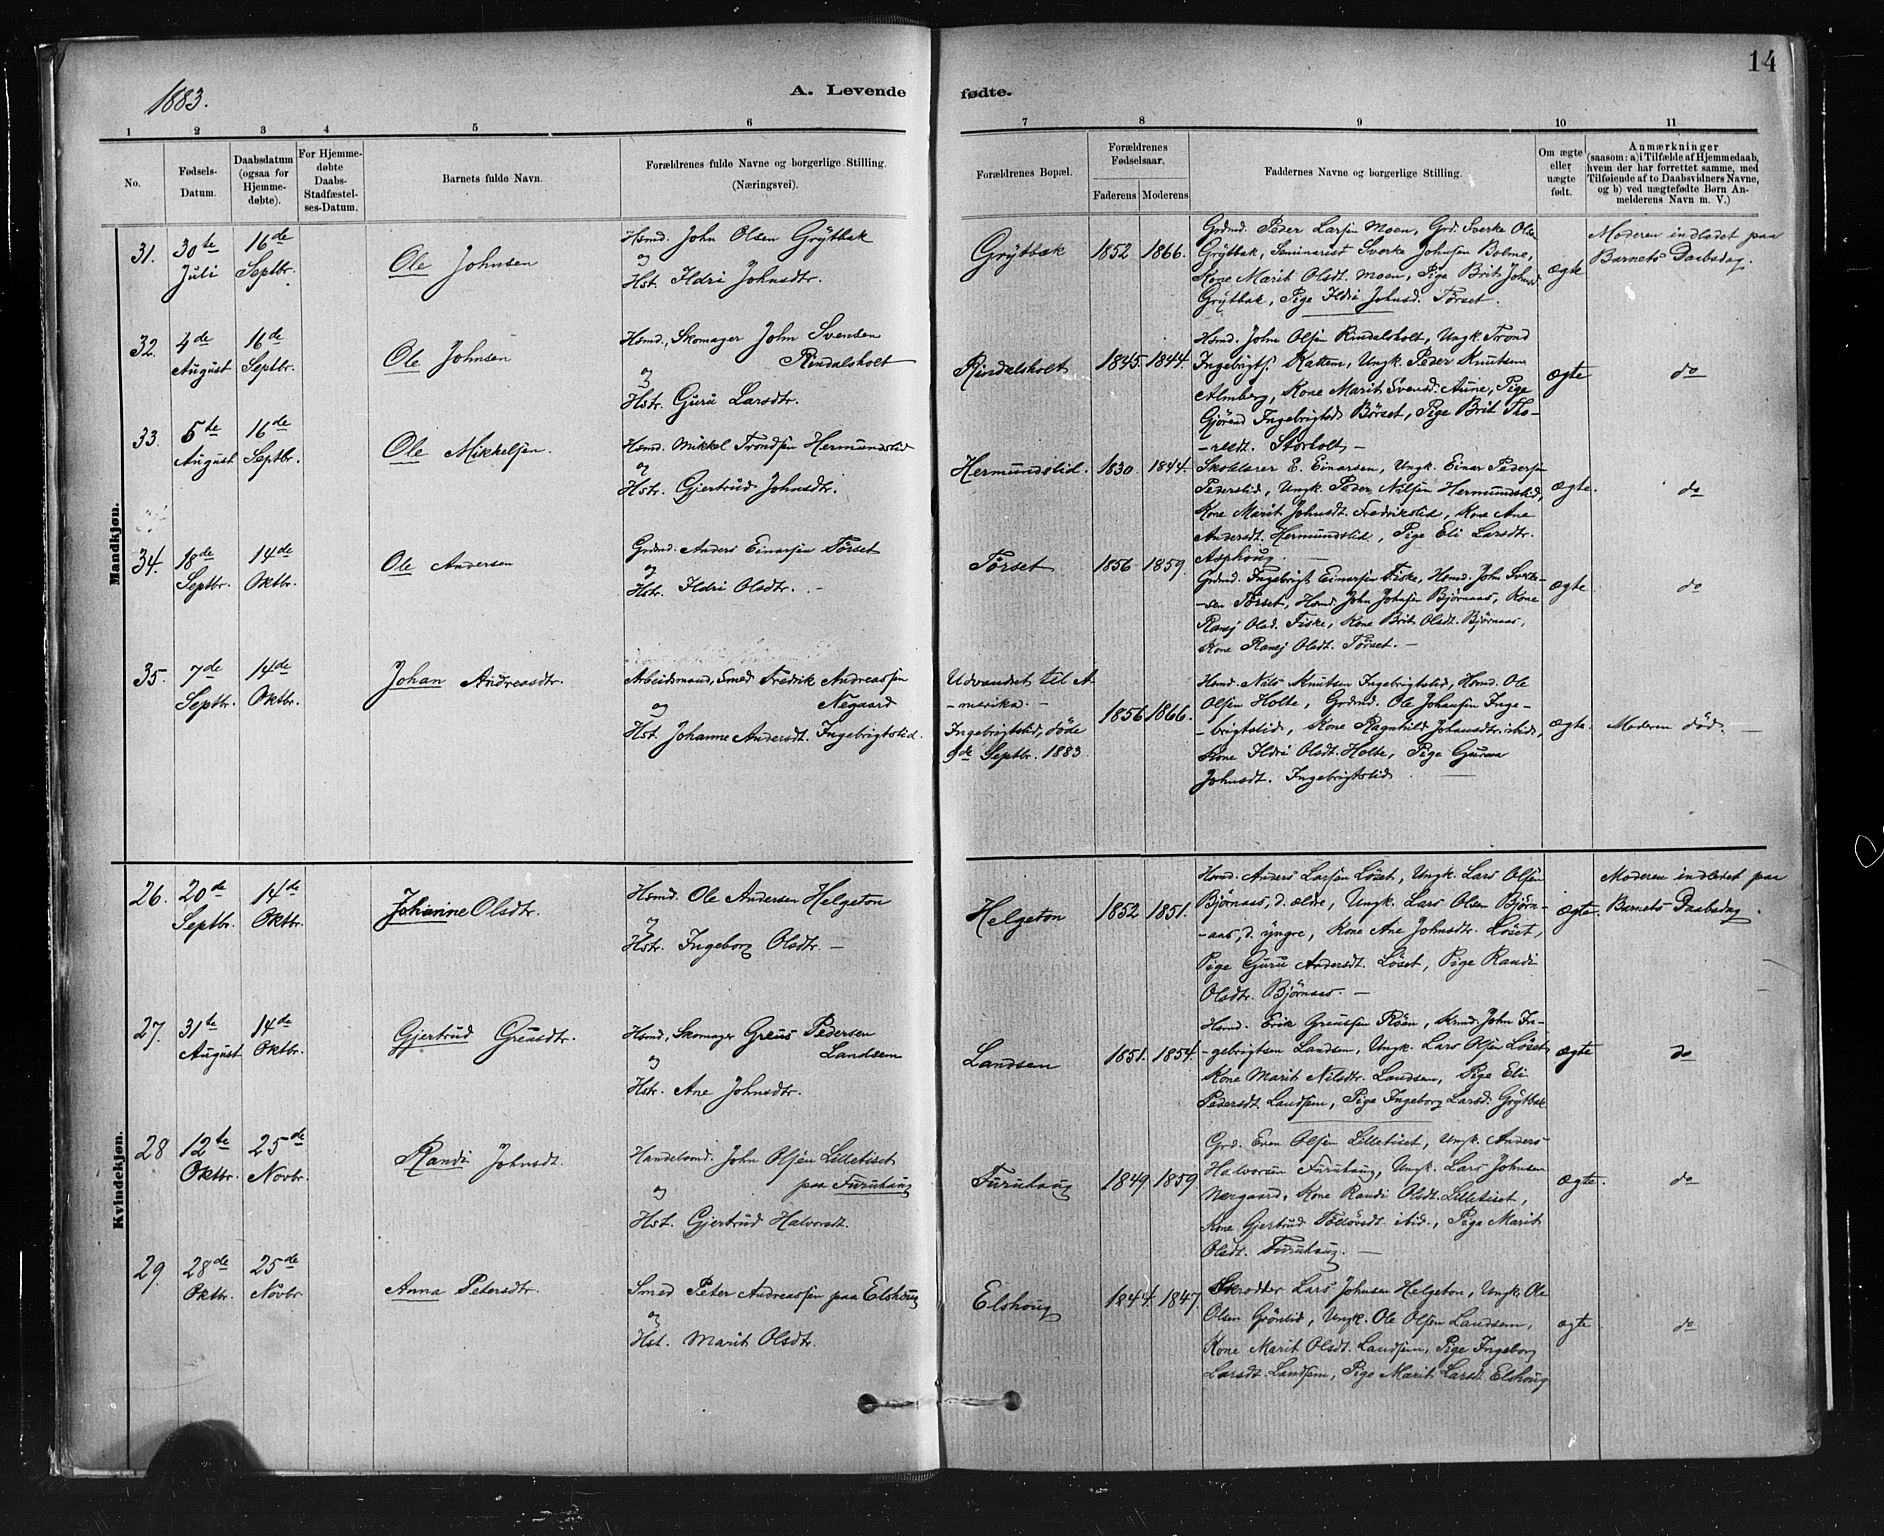 1883.
A. Levende
fødte.
14
1 2 3 4 5 6
7 8 9 10 11
No.
Fødsels-
Datum.
Daabsdatum
(ogsaa for
Hjemme-
døbte).
For Hjemme-
døbte
Daabs-
Stadfæstel-
ses-Datum.
Barnets fulde Navn.
Forældrenes fulde Navne og borgerlige Stilling.
(Næringsvei).
Forældrenes Bopæl.
Forældrenes
Fødselsaar.
Faderens Moderens
Faddernes Navne og borgerlige Stilling.
Om ægte
eller
uægte
født.
Anmærkninger
(saasom: a) i Tilfælde af Hjemmedaab,
hvem der har forrettet samme, med
Tilføiende af to Daabsvidners Navne,
og b) ved uægtefødte Børn An-
melderens Navn m. V.)
Mandkjøn.
31.
30te
Juli
16de
Septbr.
Ole Johnsen
Hsmd. John Olsen Grytbak
og
Hst. Ildri Johnsdtr.
Grytbak
1852 1866.
Grdmd. Peder Larsen Moen, Grd. Sverke Olsen
Grytbak, Seminarist Sverke Johnsen Bolme,
Kone Marit Olsdt. Moen, Pige Brit Johnsd.
Grytbak, Pige Ildri Johnsd. Tørset.
ægte
Moderen indledet paa
Barnets Daabsdag.
32.
4de
August
16de
Septbr.
Ole Johnsen
Hsmd., Skomager John Svensen
Rindalsholt
og
Hstr. Guru Larsdtr.
Rindalsholt
1845. 1844.
Hsmd. John Olsen Rindalsholt, Ungk. Trond
Ingebrigts. Kattem, Ungk. Peder Knutsen
Almberg, Kone Marit Svensd. Aune, Pige
Gjørond Ingebrigtsd. Børset, Pige Brit Tho-
-relsdt. Storholt. -
ægte
do
33.
5te
August
16de
Septbr.
Ole Mikkelsen.
Hsmd. Mikkel Trondsen Hermundslid
og
Hstr. Gjertrud Johnsdtr.
Hermundslid.
1830. 1844.
Skolelærer E. Einarsen, Ungk. Einar Pedersen
Pederslid, Ungk. Peder Nilsen Hermundslid,
Kone Marit Johnsdt. Fredrikslid, Kone Ane
Andersdt. Hermundslid, Pige Eli Larsdtr.
Asphoug
ægte.
do
34.
18de
Septbr.
14de
Oktbr.
Ole Andersen
Grdmd. Anders Einarsen Tørset
og
Hst. Ildri Olsdtr. -
Tørset
1856 1859.
Grdmd. Ingebrigt Einarsen Fiske, Hsmd. John Sverke-
-sen Tørset, Hsmd. John Johnsen Bjørnaas, Kone
Ranej Olsd. Fiske, Kone Brit Olsdt. Bjørnaas,
Kone Ranej Olsdt. Tørset. -
ægte
do
35.
7de
Septbr.
14de
Oktbr.
Johan Andreasdtr.
Arbeidsmand, Smed Fredrik Andreassen
Negaard
og
Hst. Johanne Andersdt. Ingebrigtslid.
Udvandret til A-
-merika. -
Ingebrigtslid, døde
9de Septbr. 1883
1856 1866.
Hsmd. Nils Knutsen Ingebrigtslid, Hsmd. Ole
Olsen Holte, Grdmd. Ole Johansen Inge-
-brigtslid, Kone Ragnhild Johansdtr. ibid.,
Kone Ildri Olsdt. Holte, Pige Guren
Johnsdt. Ingebrigtslid
ægte.
Moderen død. -
Kvindekjøn.
26.
20de
Septbr.
14de
Oktbr.
Johanne Olsdtr.
Hsmd. Ole Andersen Helgeton
og
Hstr. Ingeborg Olsdtr. -
Helgeton
1852 1851.
Hsmd. Anders Larsen Løset, Ungk. Lars Olsen
Bjørnaas, d. ældre, Ungk. Lars Olsen Bjørn-
-aas, d. yngre, Kone Ane Johnsdtr. Løset,
Pige Guru Andersdt. Løset, Pige Randi
Olsdtr. Bjørnaas. -
ægte.
Moderen indledet paa
Barnets Daabsdag.
27.
31te
August
14de
Oktbr.
Gjertrud Greusdtr.
Hsmd., Skomager Greus Pedersen
Landsem
og
Hstr. Ane Johnsdtr.
Landsem
1851. 1854.
Hsmd. Erik Greussen Røen, Hsmd. John In-
-gebrigtsen Landsem, Ungk. Lars Olsen Løset
Kone Marit Nilsdtr. Landsem, Pige Eli
Pedersdt. Landsem, Pige Ingeborg Larsd. Grytbak
ægte
do
28
12te
Oktbr.
25de
Novbr.
Randi Johnsdt.
Handelsmd. John Olsen Lilletiset
paa Furuhaug
og
Hst. Gjertrud Halvorsdt.
Furuhaug
1849 1859
Grd. Even Olsen Lilletiset, Ungk. Anders
Halvorsen Furuhaug, Ungk. Lars Johnsen
Nergaard, Kone Randi Olsdt. Lilletiset,
Kone Gjertrud ibid., Pige Marit
Olsdt. Furuhaug. -
ægte.
do
29.
28de
Oktbr.
25de
Novbr.
Anna Petersdtr.
Smed Peter Andreassen paa Elshoug
og
Hst. Marit Olsdtr.
Elshoug
1844. 1847.
Skrædder Lars Johnsen Helgeton, Ungk. Ole
Olsen Grønlid, Ungk. Ole Olsen Landsem,
Kone Marit Olsdt. Landsem, Pige Ingeborg
Larsdt. Landsem, Pige Marit Larsd. Elshoug
ægte
do